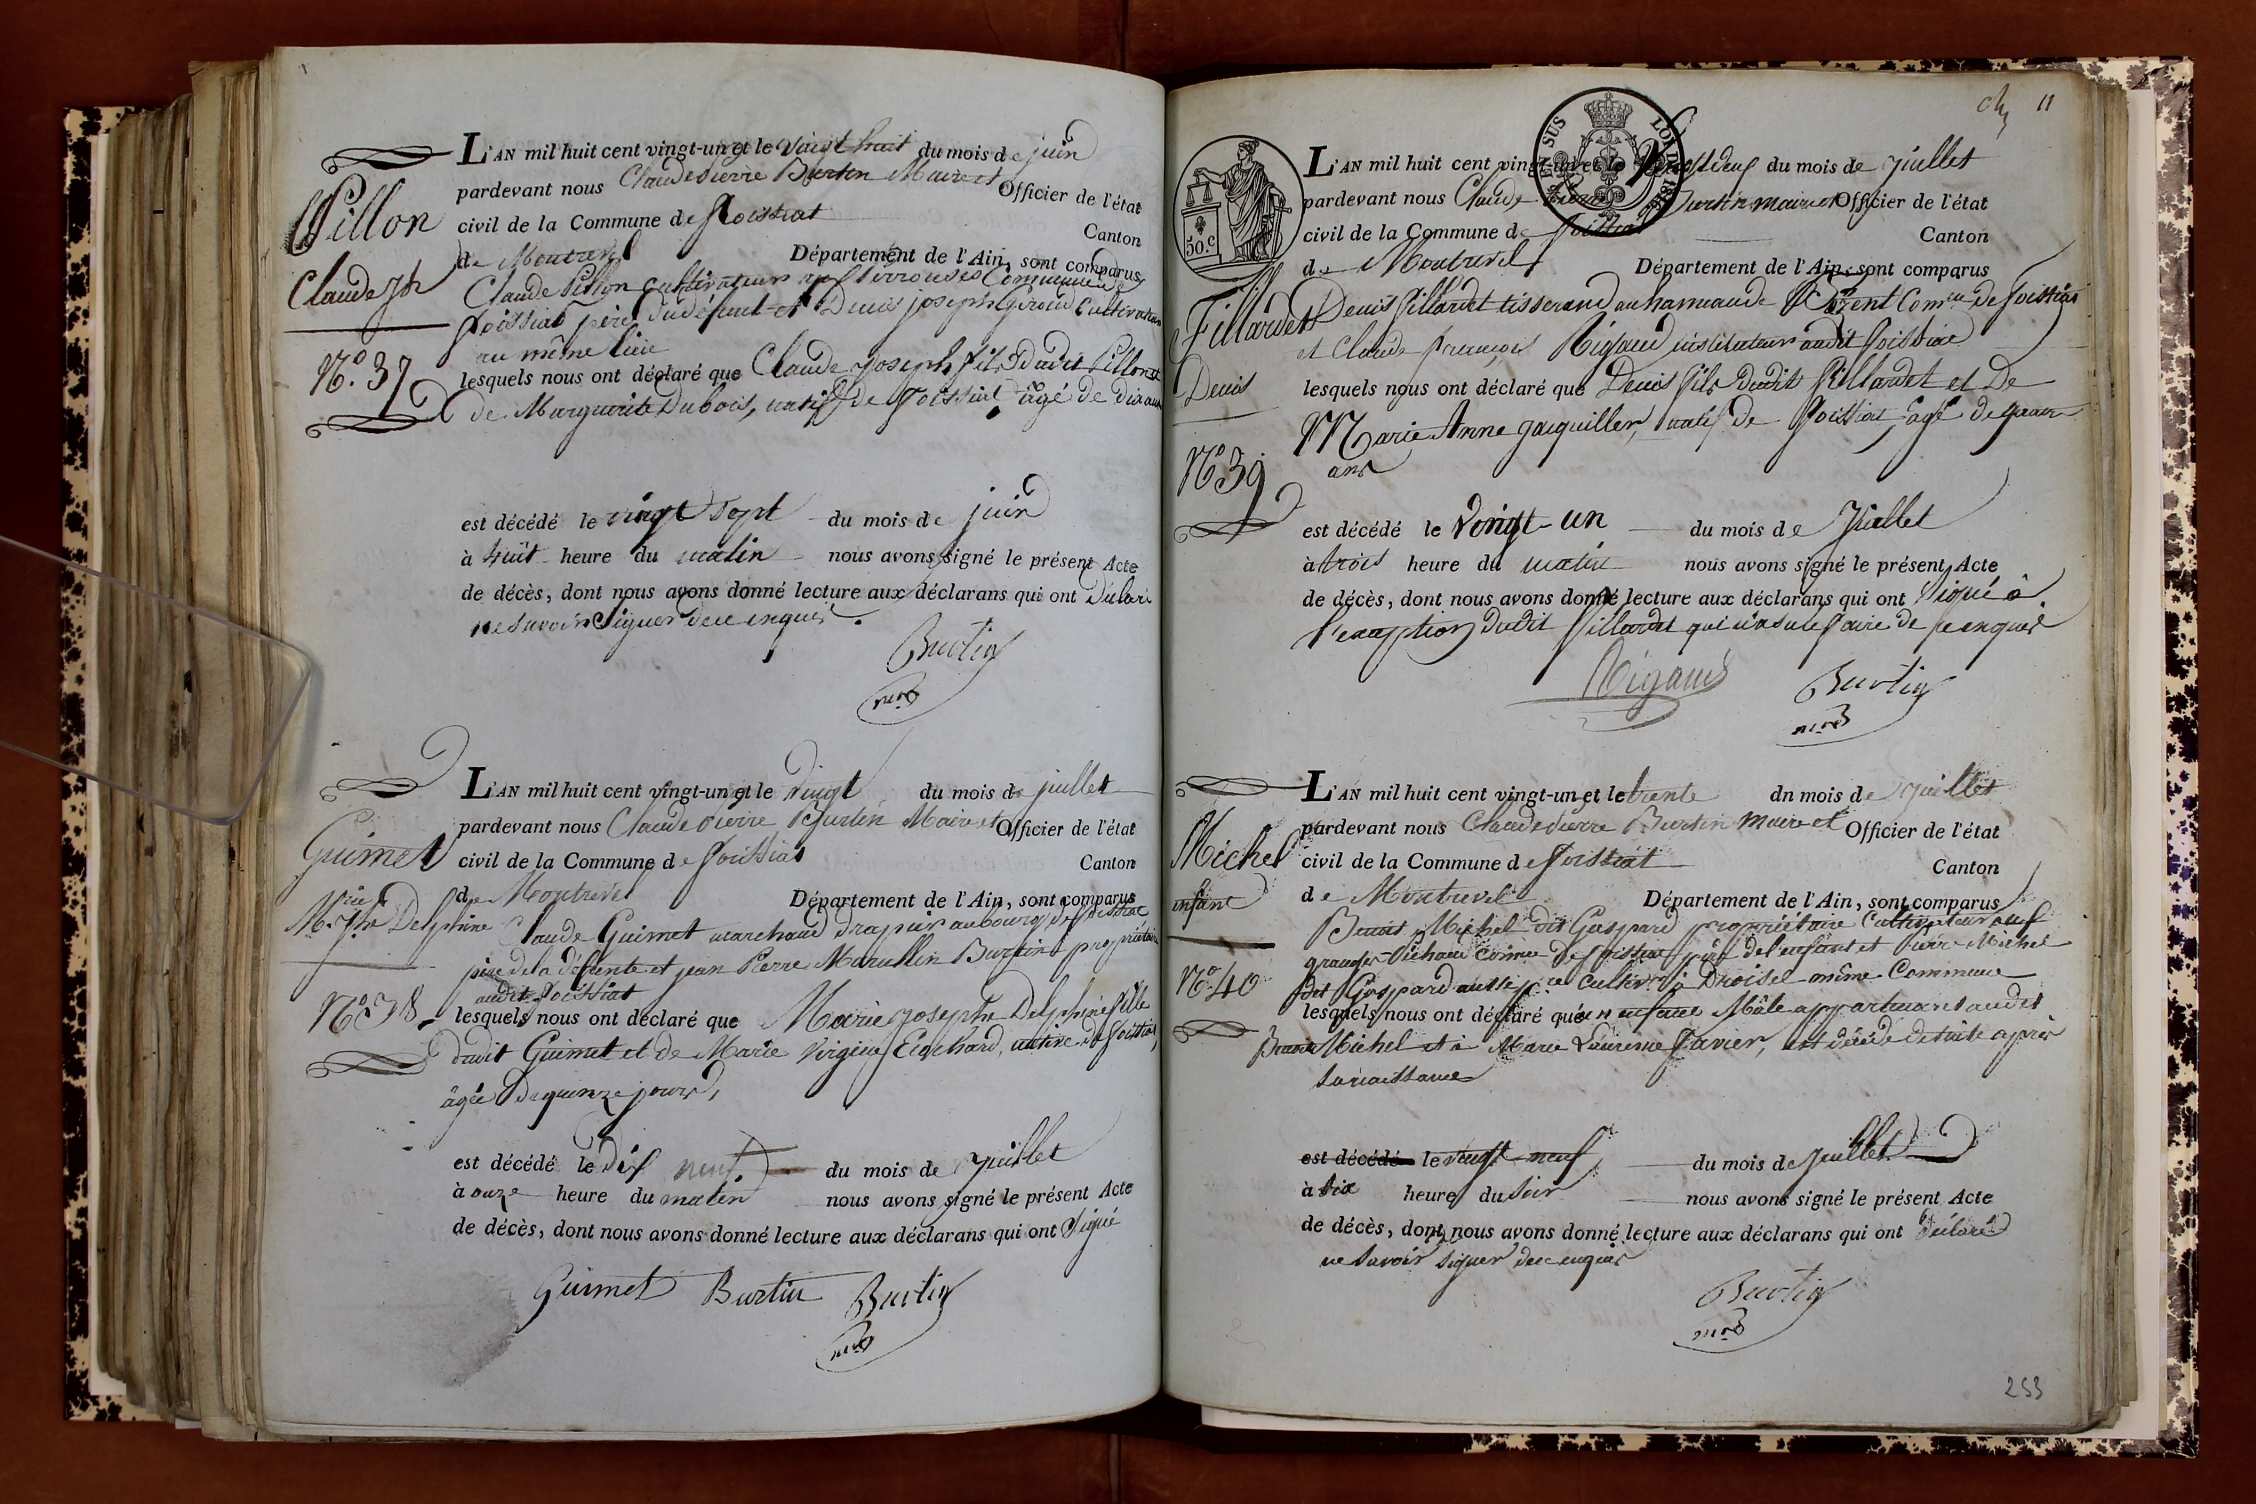 L'AN mil huit cent vingt-un et le vingt huit du mois de juin
pardevant nous Claude Pierre Burtin Maire et Officier de l'état
civil de la Commune de foissiat
Canton
de Montrevel Département de l'Ain, sont comparus
Claude Pillon cultivateur aux Commune de
foissiat père du défunt et Denis joseph cultivateur
au même lieu
lesquels nous ont déclaré que Claude joseph fils dudit Pillon et
de Marguerite Dubois, natif de foissiat âgé de dix ans
Pillon
Claude Jh
N.º 37
est décédé le vingt sept du mois de juin
à huit heure du matin nous avons signé le présent Acte
de décès, dont nous avons donné lecture aux déclarans qui ont déclaré
ne savoir signer de ce enquis.
Burtin
mre
L'AN mil huit cent vingt-un et le vingt du mois de juillet
pardevant nous Claude Pierre Burtin Maire et Officier de l'état
civil de la Commune de foissiat
Canton
de Montrevel Département de l'Ain, sont comparus
Claude Guimet marchand drapier au bourg de foissiat
père de la défunte et jean Pierre Marcellin Burtin propriétaire
audit foissiat
lesquels nous ont déclaré que Marie josephe Delphine fille
dudit Guimet et de Marie Virginie native de foissiat,
âgée de quinze jours,
Guimet
Mrie Jhe Delphine
N.º 38
est décédé le dix neuf du mois de juillet
à onze heure du matin nous avons signé le présent Acte
de décès, dont nous avons donné lecture aux déclarans qui ont signé
Guimet Burtin Burtin
mre
11
EN SUS LOI DE 1816
50.c
L'AN mil huit cent vingt-un et le vingt deux du mois de juillet
pardevant nous Claude Pierre Burtin maire et Officier de l'état
civil de la Commune de foissiat
Canton
de Montrevel Département de l'Ain, sont comparus
Denis fillardet tisserand au hameau de Comne de foissiat
et Claude françois Rigaud instituteur audit foissiat
lesquels nous ont déclaré que Denis fils dudit fillardet et De
Marie Anne gacquiller, natif de foissiat, âgé de quatre
ans
Fillardet
Denis
N.º 39
est décédé le vingt-un du mois de juillet
à trois heure du matin nous avons signé le présent Acte
de décès, dont nous avons donné lecture aux déclarans qui ont signé à
l'exception dudit fillardet qui n'a su le faire de ce enquis
Rigaud Burtin
mre
L'AN mil huit cent vingt-un et le trente dn mois de juillet
pardevant nous Claude Pierre Burtin maire et Officier de l'état
civil de la Commune de foissiat
Canton
de Montrevel Département de l'Ain, sont comparus
Benoit Michel dit Gaspard propriétaire cultivateur aux
granges de foissiat père de l'enfant et Pierre Michel
dit Gaspard aussi pre cultivr à même Commune
lesquels nous ont déclaré que un enfant Mâle appartenant audit
Benoit Michel et à Marie Laurence favier, est décédé de suite après
sa naissance
Michel
enfant
N.º 40
est décédé le vingt neuf du mois de juillet
à six heure du soir nous avons signé le présent Acte
de décès, dont nous avons donné lecture aux déclarans qui ont déclaré
ne savoir signer de ce enquis
Burtin
mre
253